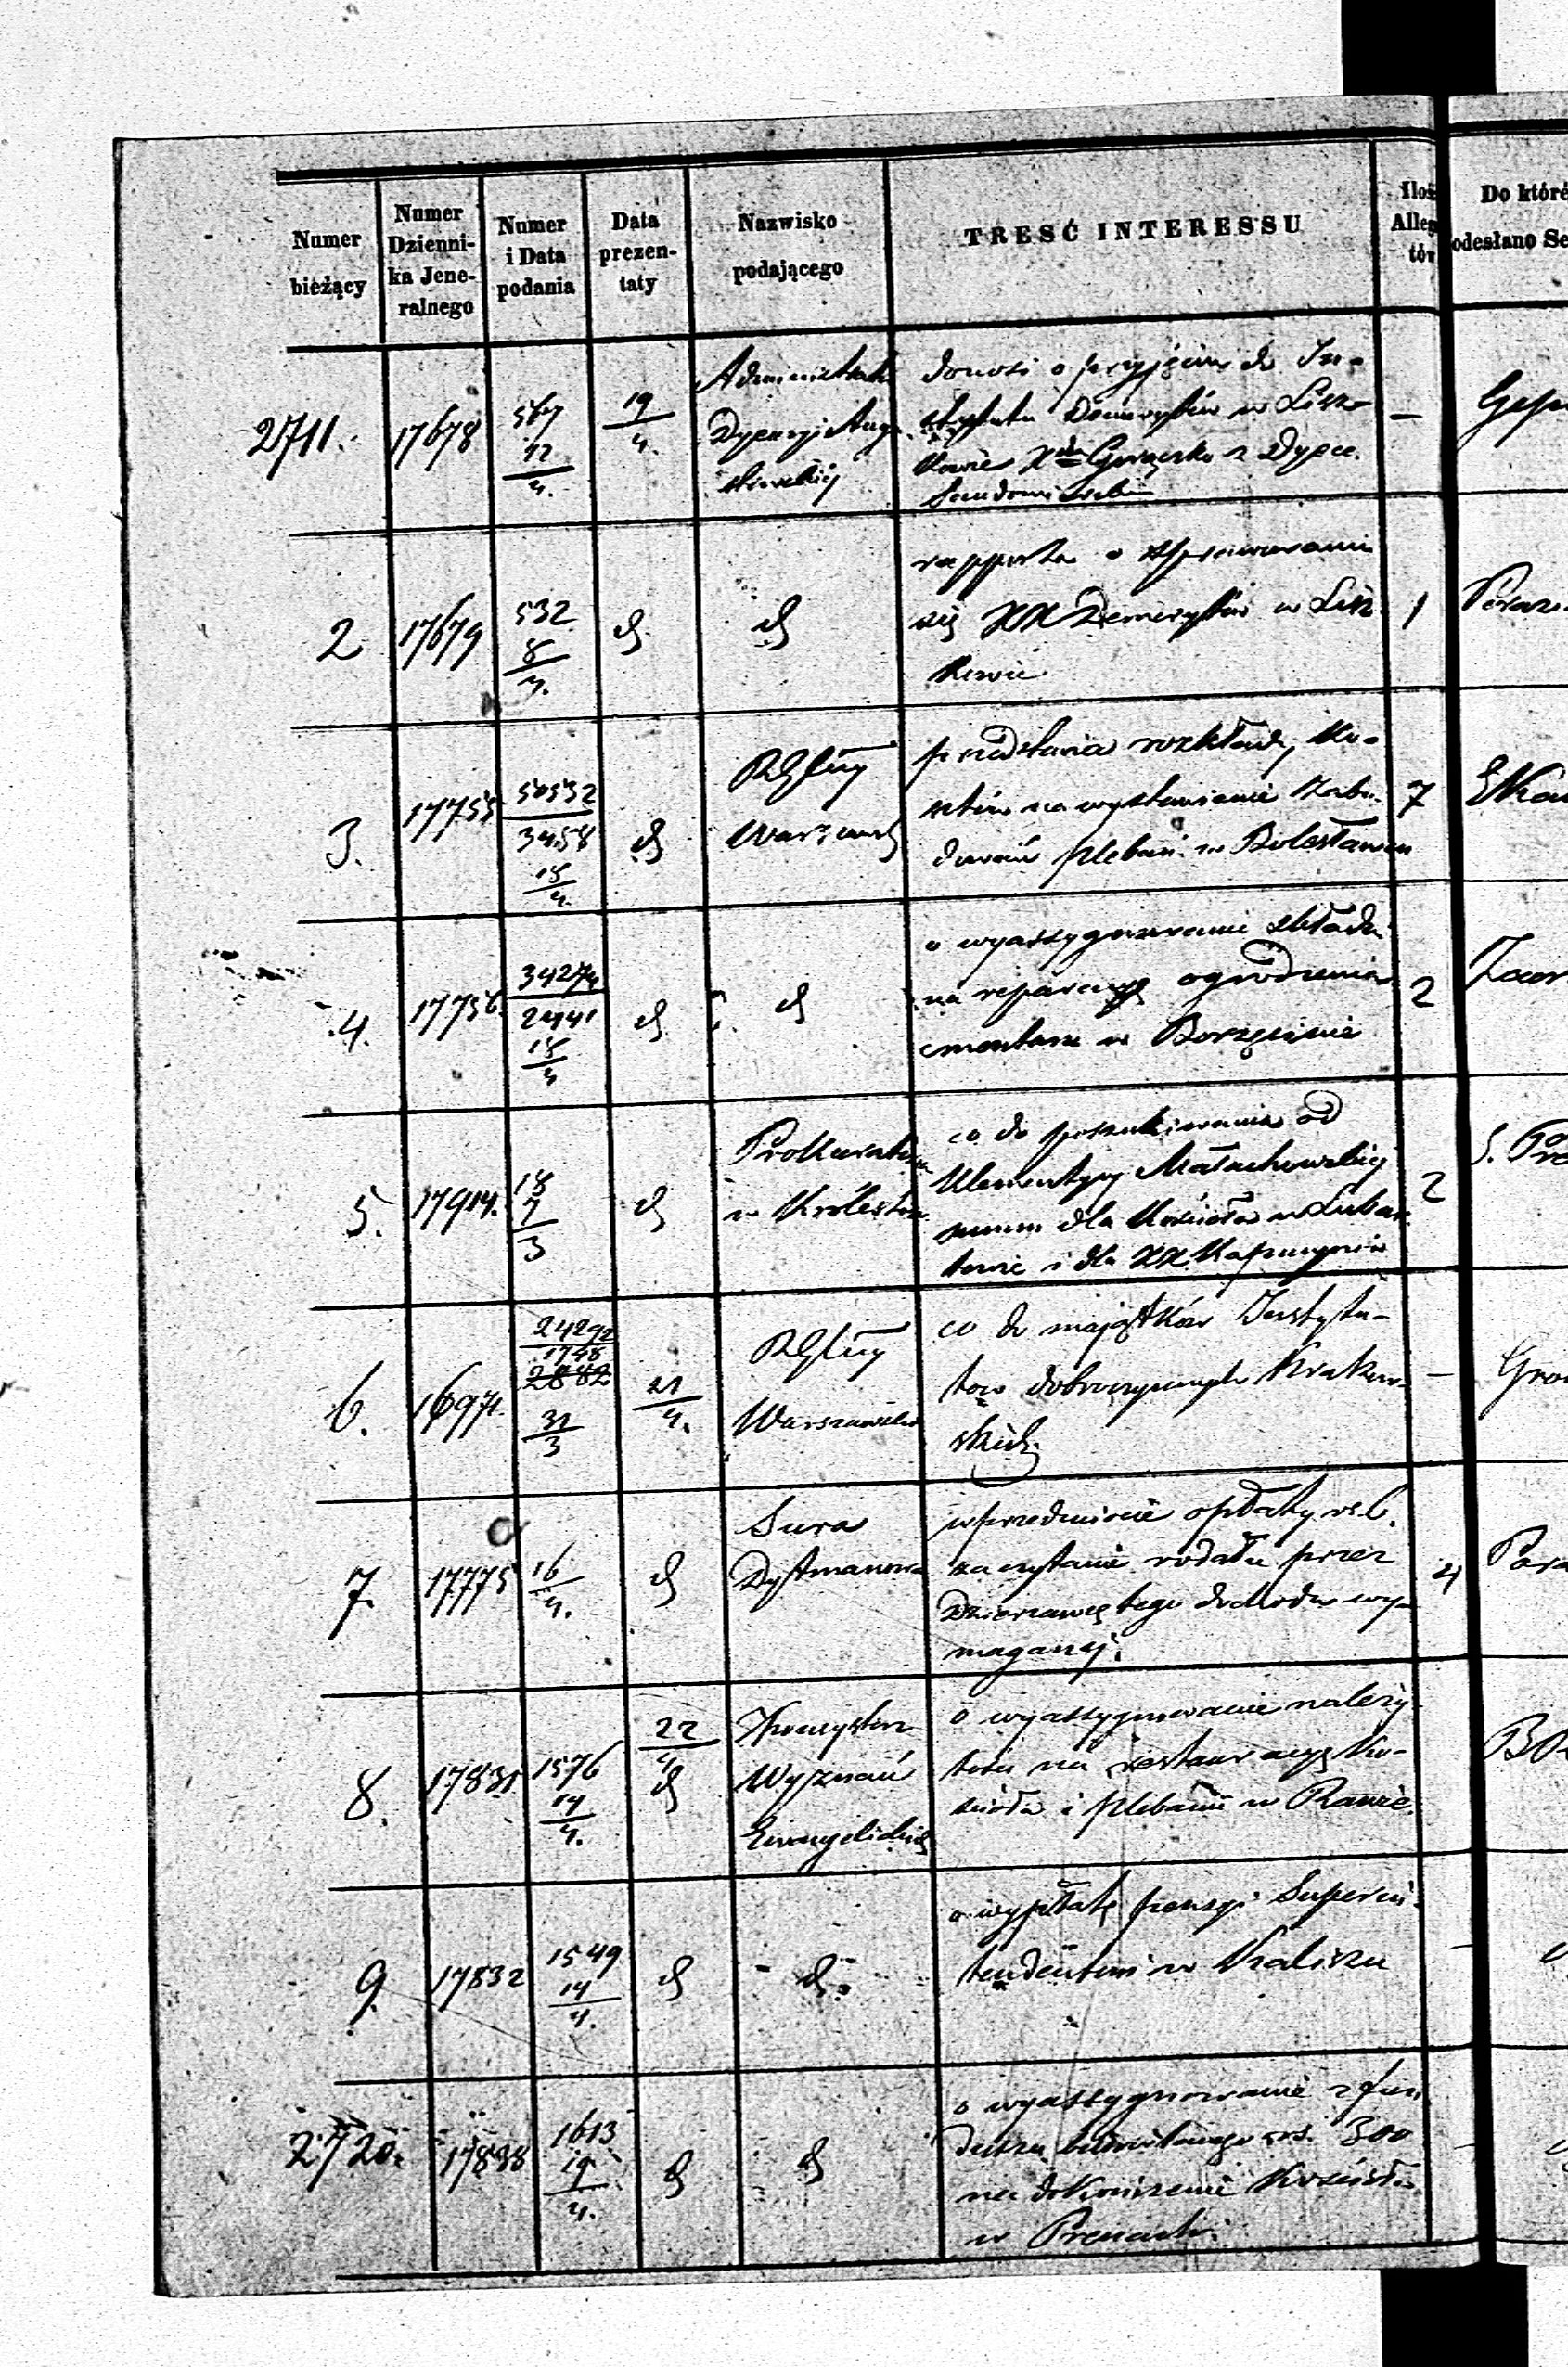 Numer
bieżący
Numer
Dzienni-
ka Jene-
ralnego
Numer
i Data
podania
Data
prezen-
taty
Nazwisko
podającego
TRESĆ INTERESSU
Ilość
Alleg
tów
Do któré
odesłano Se
2711.
17678
567
12
4.
19
4.
Administrator
Dyecezji Augu-
stowskiéj
donosi o przyjęciu do In-
stytutu Demerytów w Lisz-
kowie Xdza z Dyec.
Sandomirskiéj
—
2
17679
532
8
4.
d
d
rapporta o sprawowaniu
się XX Demerytów w Lisz
kowie
1
3.
17755
50532
3458
18
4.
d
R Gług
Warszaws
przedstawia rozkład, ko-
sztów na wystawienie zabu-
dowań pleban. w Bolesławcu
7
4.
17756
34274
2441
18
4
d
d
o wyassygnowanie składki
na reparacyę ogrodzenia
cmentarza w Borzęcinie
2
5.
17914.
18
7
3
d
Prokuratorya
w Królestwie
co do poszukiwania od
Klementyny Małachowskiéj
summ dla Kościoła w Lubar
towie i dla XX Kapucynów
2
6.
16971
24292
1748
2882
31
3
21
4.
R Gług
Warszawski
co do majątków Instytu-
tow dobroczynnych Krakow-
skich
—
7.
17775
16
4.
d
Sura
Dystmanowa
w przedmiocie opłaty rs. 6.
za czytanie rodału przez
Dzierzawcę tego dochodu wy-
maganej.
4
8.
17831
1576
14
4.
22
4
d
Konsystorz
Wyznań
Ewangelickich
o wyassygnowanie należy-
tości na restauracyę Ko-
ścioła i plebanii w Rawie.
9.
17832
1549
14
4.
d
d
o wypłatę pensyi Superin-
tendentowi w Kaliszu
2720.
17838
1613
19
4.
d
d
o wyassygnowanie z fun
duszu budowlanego rs. 300
na dokończenie Kościoła
w Prenach.